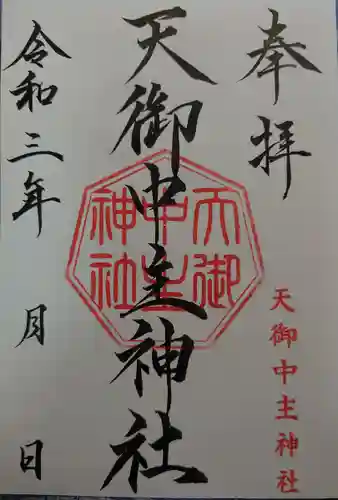 奉拝
天御中主神社
天御中主神社
天御中主神社
令和三年 月 日